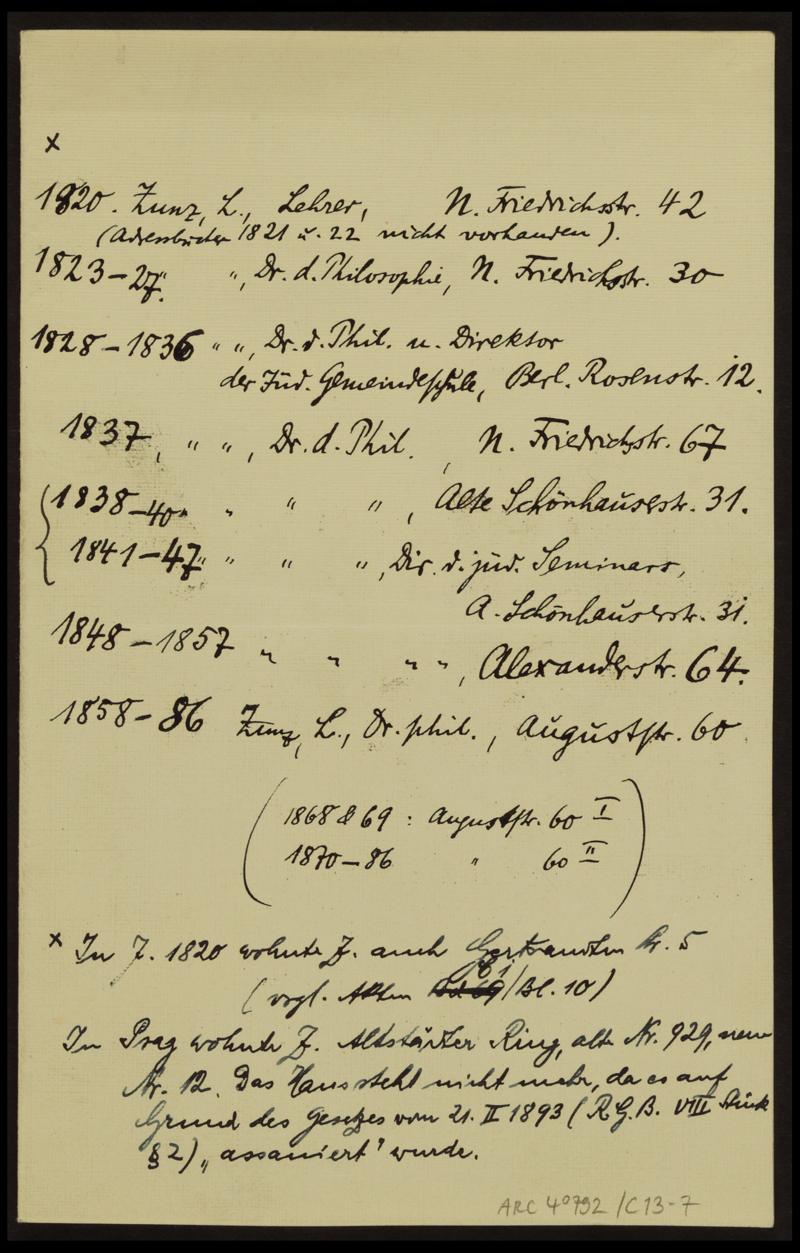 x
1820. Zunz, L., Lehrer, N. Friedrichsstr. 42
(Adressbücher 1821 u. 22 nicht vorhanden).
1823–27. " ", Dr. d. Philosophie, N. Friedrichsstr. 30
1828–1836 " ", Dr. d. Phil. u. Direktor
der Jüd. Gemeindeschule, Berl. Rosenstr. 12.
1837, " ", Dr. d. Phil., N. Friedrichsstr. 67
1838–40 " " " ", Alte Schönhauserstr. 31.
1841–47 " " " ", Dir. d. jüd. Seminars,
A. Schönhauserstr. 31.
1848–1857 " " " ", Alexanderstr. 64.
1858–86 Zunz, L., Dr. phil., Auguststr. 60
(1868 & 69 : Auguststr. 60 I
1870–86 " 60 II)
x In J. 1820 wohnte Z. auch Nr. 5
(vergl. Akten /Bl. 10)
In Prag wohnte Z. Altstädter Ring, alte Nr. 929, neue
Nr. 12. Das Haus steht nicht mehr, da es auf
Grund des Gesetzes vom 21. II 1893 (R.G.B. VIII Stück
§ 2) „assaniert" wurde.
ARC 4° 792 /C13-7